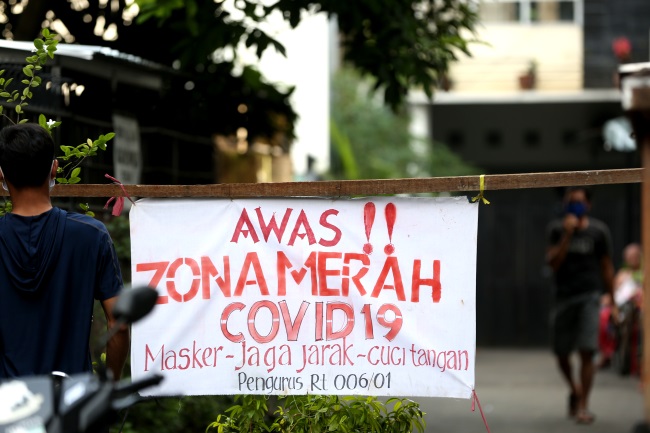 AWAS !!
ZONA MERAH
COVID19
Masker-Jaga jarak-cuci tangan
Pengurus Rt 006/01